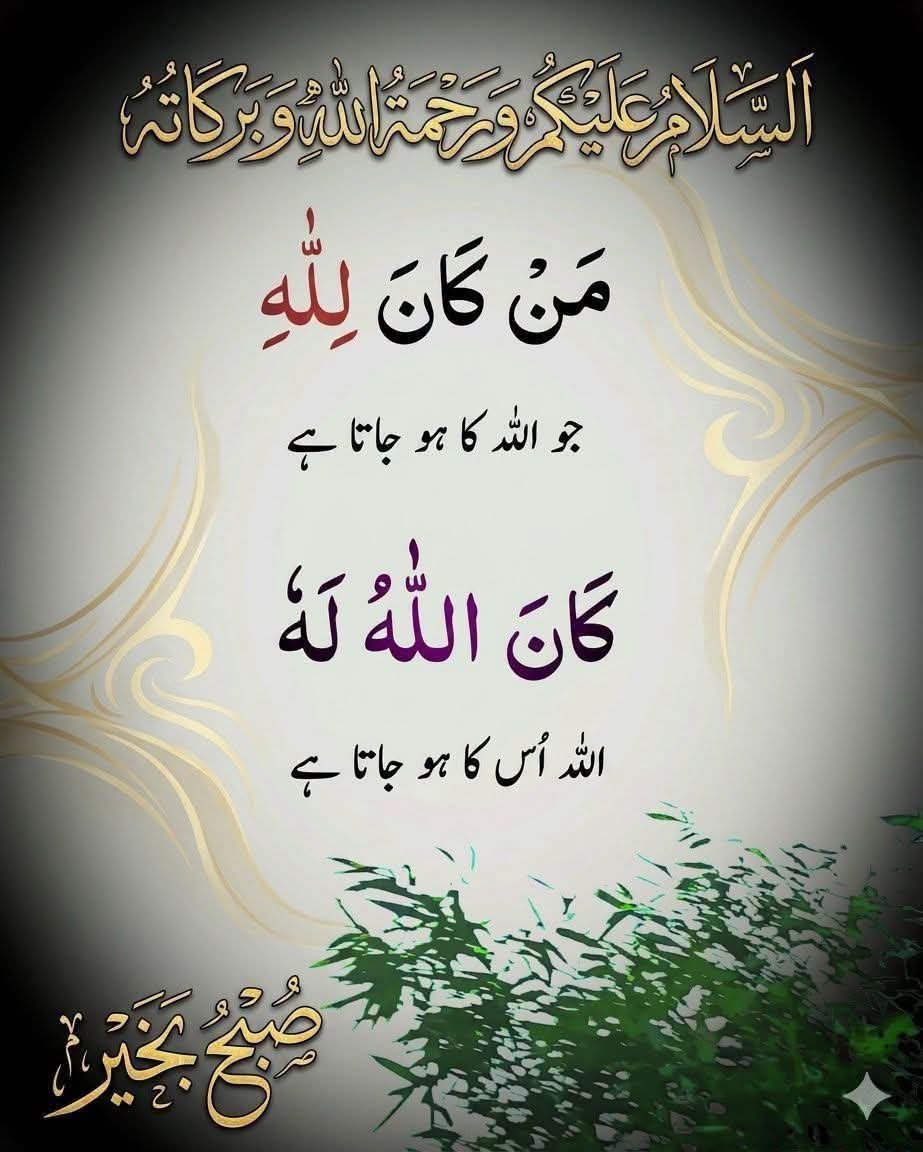 اَلسَّلَامُ عَلَيْكُمْ وَرَحْمَةُ اللهِ وَبَرَكَاتُهُ
مَنْ كَانَ لِلّٰهِ
جو اللہ کا ہو جاتا ہے
كَانَ اللّٰهُ لَهٗ
اللہ اُس کا ہو جاتا ہے
صُبْحُ بَخَیْر